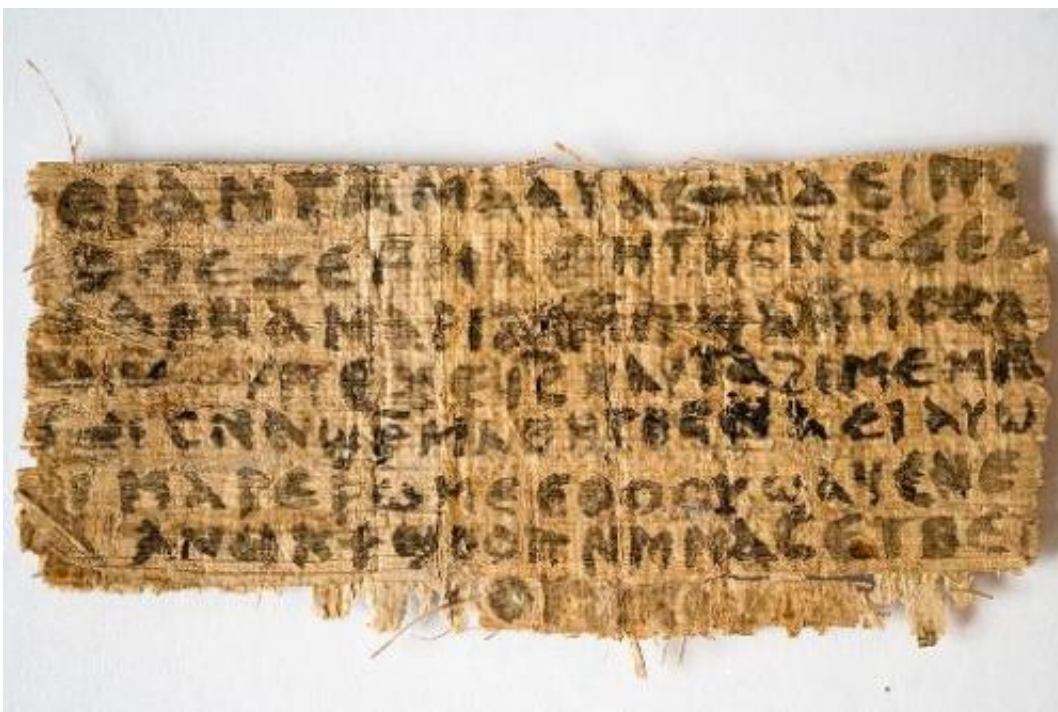 ⲉⲓ ⲁⲛ ⲧⲁⲙⲁⲁⲩ ⲁⲥϯ ⲛⲁⲉⲓ ⲡ
ⲡⲉϫⲉ ⲙⲙⲁⲑⲏⲧⲏⲥ ⲛ̄ⲓ̄ⲥ̄ ϫⲉ
ⲁⲣⲛⲁ ⲙⲁⲣⲓⲁⲙ
ⲡⲉϫⲉ ⲓ̄ⲥ̄ ⲛⲁⲩ ⲧⲁϩⲓⲙⲉ ⲙⲛ
ⲥⲛⲁϣⲣⲙⲁⲑⲏⲧⲏⲥ ⲛⲁⲉⲓ ⲁⲩⲱ
ⲙⲁⲣⲉⲣⲱⲙⲉ ⲉⲑⲟⲟⲩ ϣⲁϥⲉ ⲛⲉ
ⲁⲛⲟⲕ ϯϣⲟⲟⲡ ⲛⲙⲙⲁⲥ ⲉⲧⲃⲉ